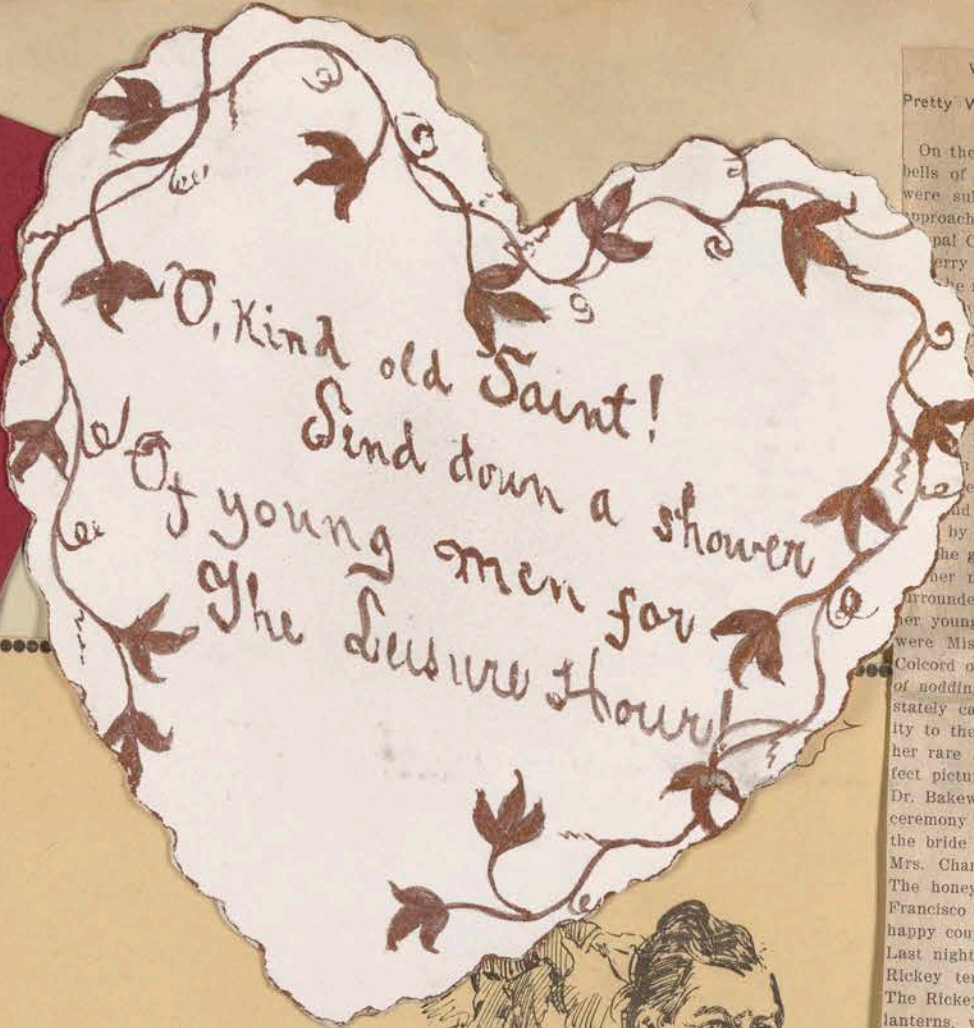 O, Kind old Saint!
Send down a shower
Of young men for
The Leisure Hour!
Pretty
On the
bells of
were
approach
by
her young
were Mis
Colcord o
of noddin
stately ca
ity to the
her rare
fect pictu
Dr. Bakew
ceremony
the bride
Mrs. Char
The honey
Francisco
happy cou
Last night
Rickey ter
The Rickey
lanterns,